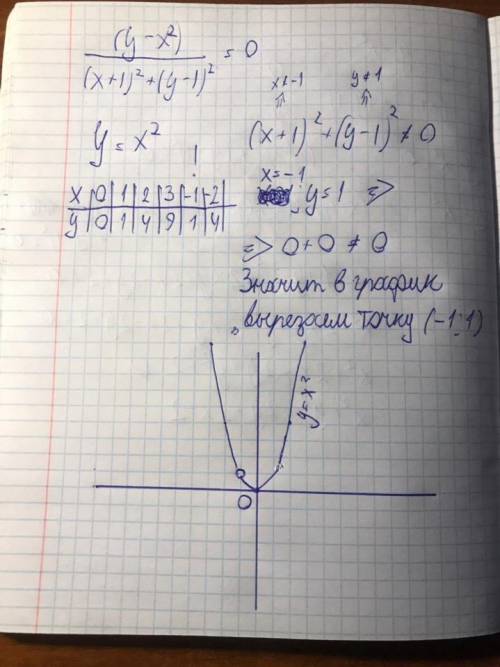 (y-x²)/((x+1)²+(y-1)²) = 0
x≠-1 y≠1
y = x²
(x+1)²+(y-1)² ≠ 0
!
x|0|1|2|3|-1|-2|
y|0|1|4|9|1|4|
x=-1
; y=1 =>
=> 0+0 ≠ 0
Значит в график
вырезаем точку (-1;1)
y=x²
0